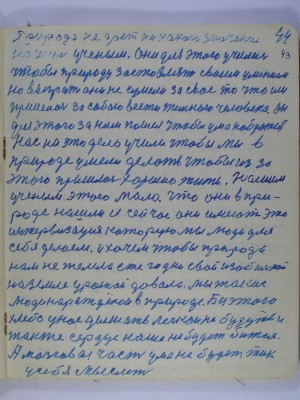 Природа не дает никакого
нашим ученым. Они для этого учились
чтобы природу заставлять своим умением
но в природе они не сумели за свое то что им
пришлося за собою вести темного человека. Он
для этого за ним пошел чтобы ума набратся
Нас на это дело учили чтобы мы в
природе умели делать чтобы из за
этого пришлось хорошо жить. Нашим
ученым этого мало. что они в при-
роде нашли и сейчас они имеют это
которую мы люди для
себя делаем, и хочем чтобы природа
нам не жалела ежегодно свой изобильной
на земле урожай давала. мы такие
люди нарождаемся в природе. Без этого
хлеба уже легкие не будут и
также сердце наше не будет битса.
А мозговая часть уже не будет так
у себя мыслить
44
43